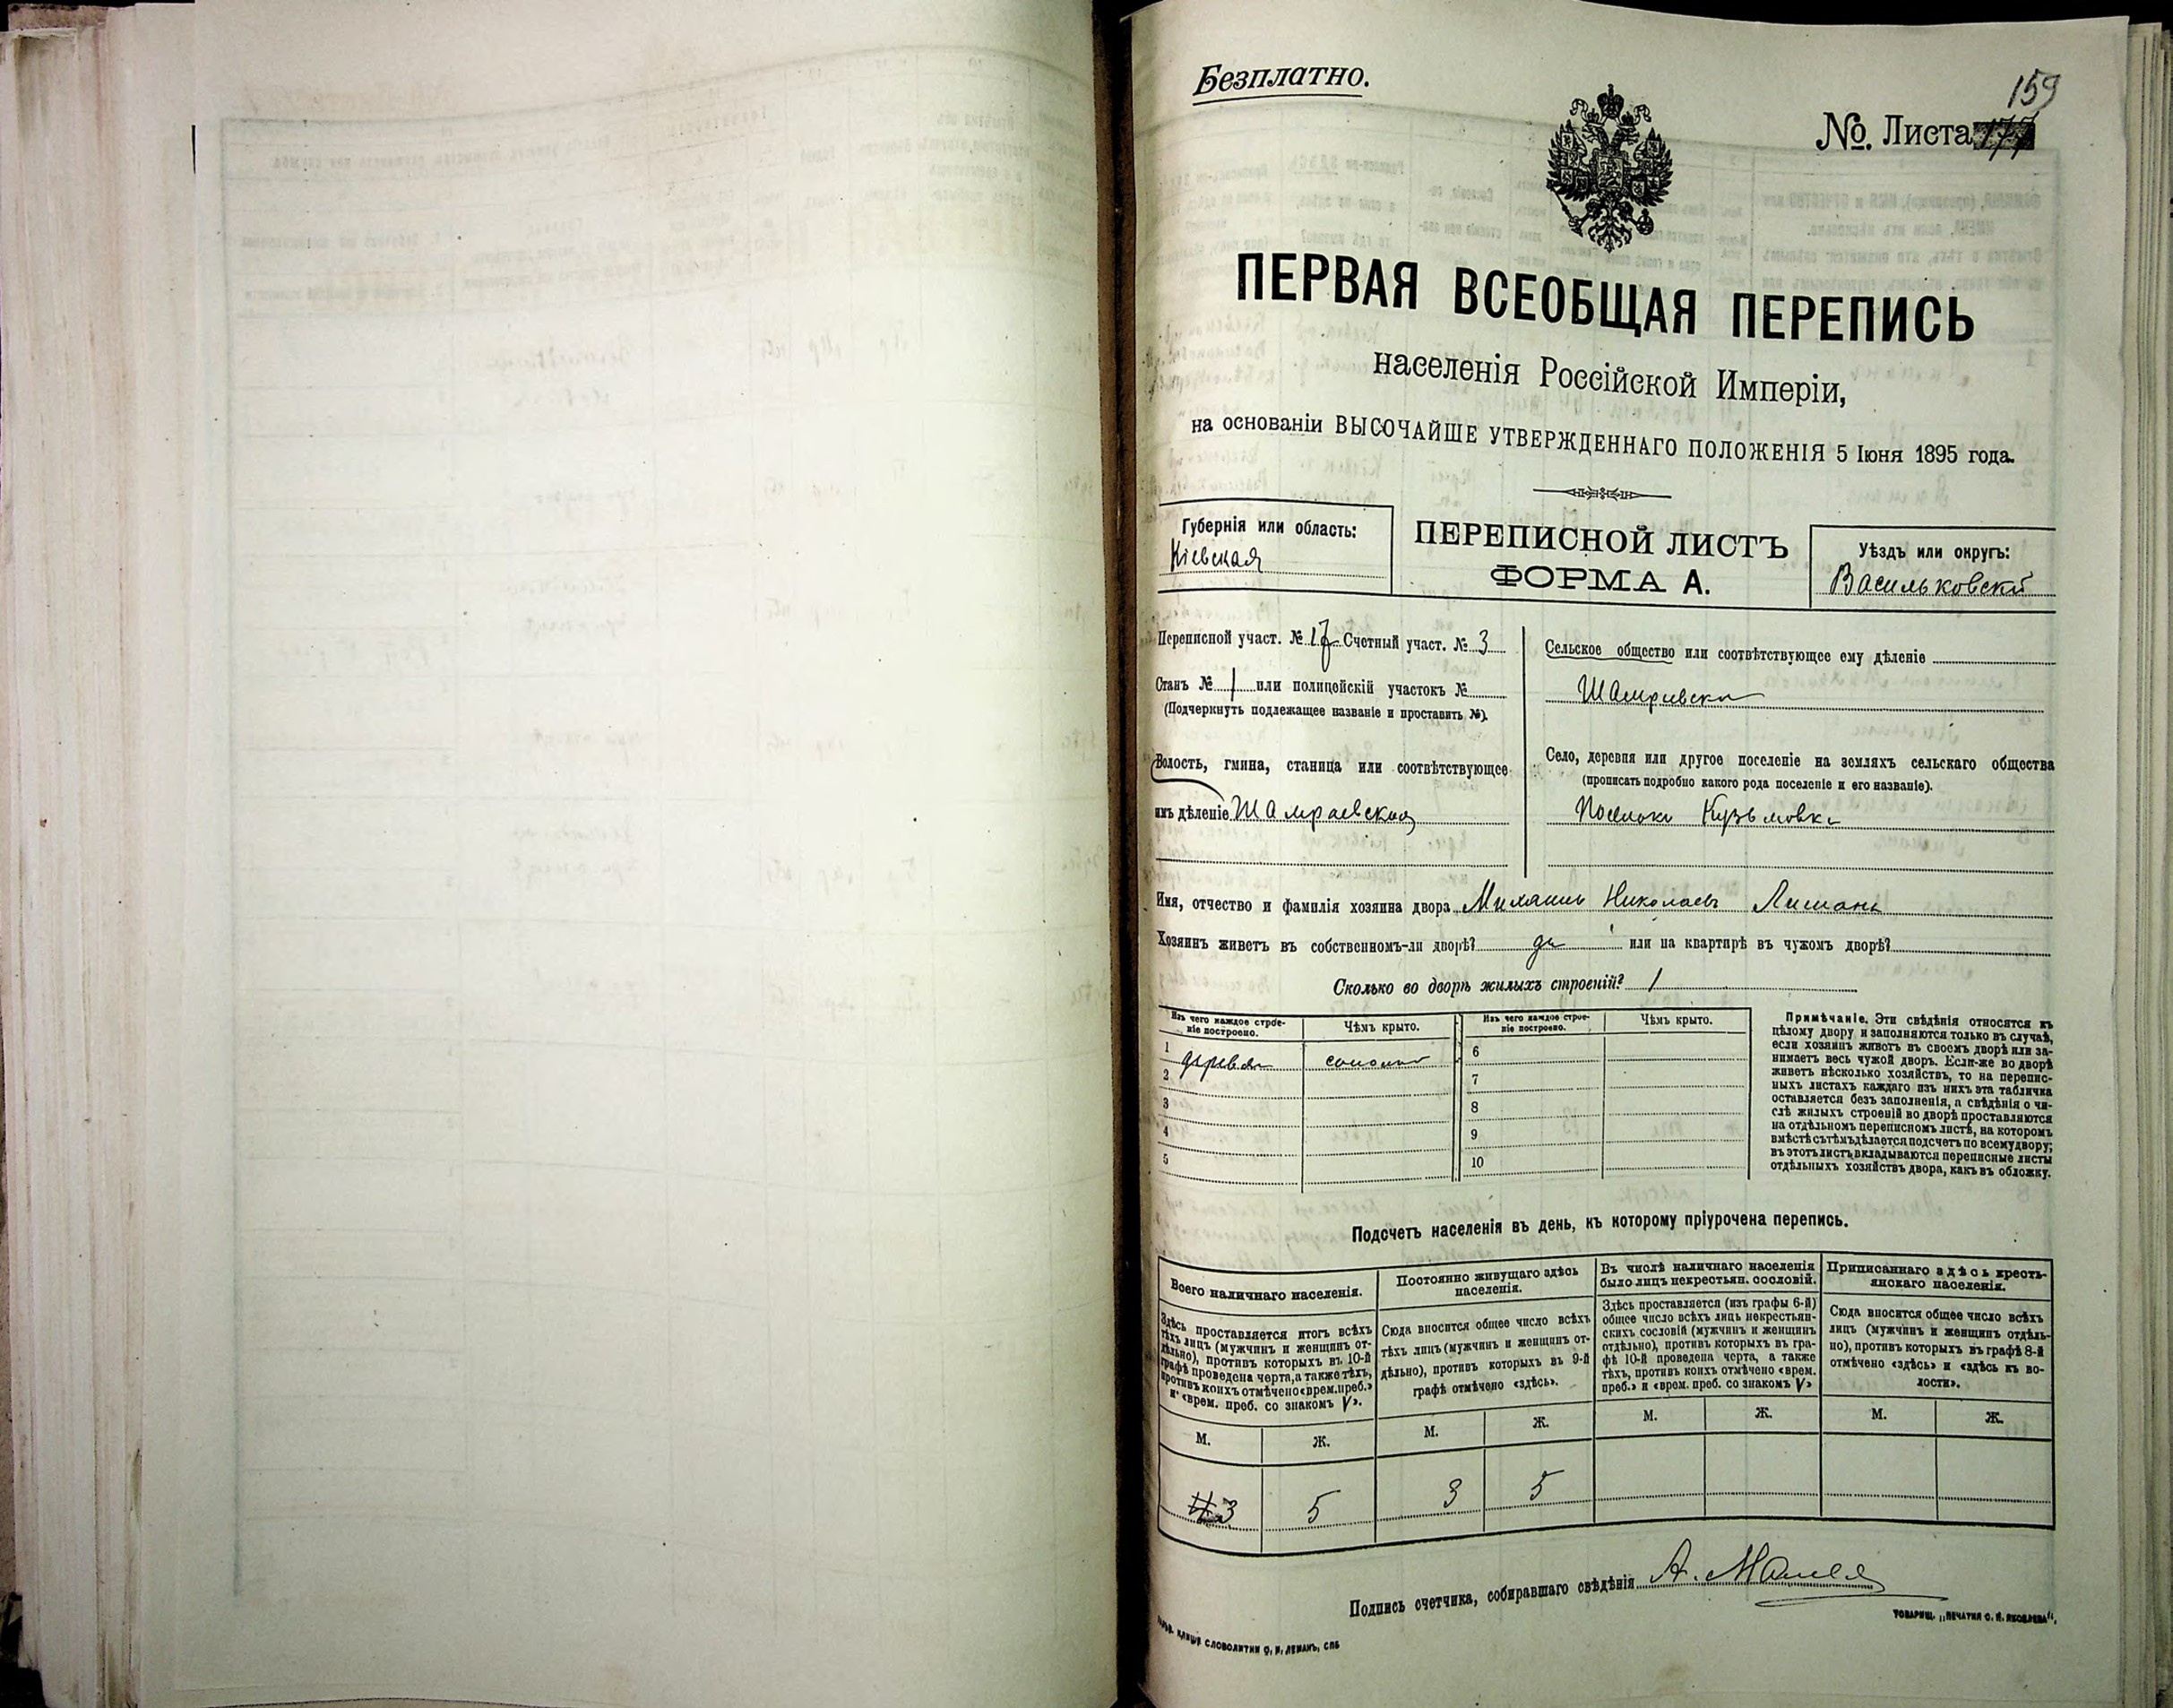 Безплатно.
159
№. Листа 177
ПЕРВАЯ ВСЕОБЩАЯ ПЕРЕПИСЬ
населенія Россійской Имперіи,
на основаніи ВЫСОЧАЙШЕ УТВЕРЖДЕННАГО ПОЛОЖЕНІЯ 5 Іюня 1895 года.
Губернія или область:
Кіевская
ПЕРЕПИСНОЙ ЛИСТЪ
ФОРМА А.
Уѣздъ или округъ:
Васильковскій
Переписной участ. № 17 Счетный участ. № 3
Станъ № 1 или полицейскій участокъ №
(Подчеркнуть подлежащее названіе и проставить №).
Волость, гмина, станица или соотвѣтствующее
имъ дѣленіе Шамраевская
Сельское общество или соотвѣтствующее ему дѣленіе
Село, деревня или другое поселеніе на земляхъ сельскаго общества
(прописать подробно какого рода поселеніе и его названіе).
Поселокъ Кузьмовка
Имя, отчество и фамилія хозяина двора Михаилъ Николаевъ Лишань
Хозяинъ живетъ въ собственномъ-ли дворѣ? да или на квартирѣ въ чужомъ дворѣ?
Сколько во дворѣ жилыхъ строеній? 1
Изъ чего каждое строе-
ніе построено.
Чѣмъ крыто.
Изъ чего каждое строе-
ніе построено.
Чѣмъ крыто.
1 дерева соломой
2
3
4
5
6
7
8
9
10
Примѣчаніе. Эти свѣдѣнія относятся къ
цѣлому двору и заполняются только въ случаѣ,
если хозяинъ живетъ въ своемъ дворѣ или за-
нимаетъ весь чужой дворъ. Если-же во дворѣ
живетъ нѣсколько хозяйствъ, то на перепис-
ныхъ листахъ каждаго изъ нихъ эта табличка
оставляется безъ заполненія, а свѣдѣнія о чи-
слѣ жилыхъ строеній во дворѣ проставляются
на отдѣльномъ переписномъ листѣ, на которомъ
вмѣстѣ съ тѣмъ дѣлается подсчетъ по всему двору;
въ этотъ листъ вкладываются переписные листы
отдѣльныхъ хозяйствъ двора, какъ въ обложку.
Подсчетъ населенія въ день, къ которому пріурочена перепись.
Всего наличнаго населенія.
Здѣсь проставляется итогъ всѣхъ
тѣхъ лицъ (мужчинъ и женщинъ от-
дѣльно), противъ которыхъ въ 10-й
графѣ проведена черта, а также тѣхъ,
противъ коихъ отмѣчено «врем. преб.»
и «врем. преб. со знакомъ V».
Постоянно живущаго здѣсь
населенія.
Сюда вносится общее число всѣхъ
тѣхъ лицъ (мужчинъ и женщинъ от-
дѣльно), противъ которыхъ въ 9-й
графѣ отмѣчено «здѣсь».
Въ числѣ наличнаго населенія
было лицъ некрестьян. сословій.
Здѣсь проставляется (изъ графы 6-й)
общее число всѣхъ лицъ некрестьян-
скихъ сословій (мужчинъ и женщинъ
отдѣльно), противъ которыхъ въ гра-
фѣ 10-й проведена черта, а также
тѣхъ, противъ коихъ отмѣчено «врем.
преб.» и «врем. преб. со знакомъ V»
Приписаннаго здѣсь кресть-
янскаго населенія.
Сюда вносится общее число всѣхъ
лицъ (мужчинъ и женщинъ отдѣль-
но), противъ которыхъ въ графѣ 8-й
отмѣчено «здѣсь» и «здѣсь въ во-
лости».
М. Ж. М. Ж. М. Ж. М. Ж.
3 5 3 5
Подпись счетчика, собиравшаго свѣдѣнія А.
КЛИШЕ СЛОВОЛИТНИ О. И. ЛЕМАНЪ, СПБ
ТОВАРИЩ. „ПЕЧАТНЯ С. П. ЯКОВЛЕВА“.